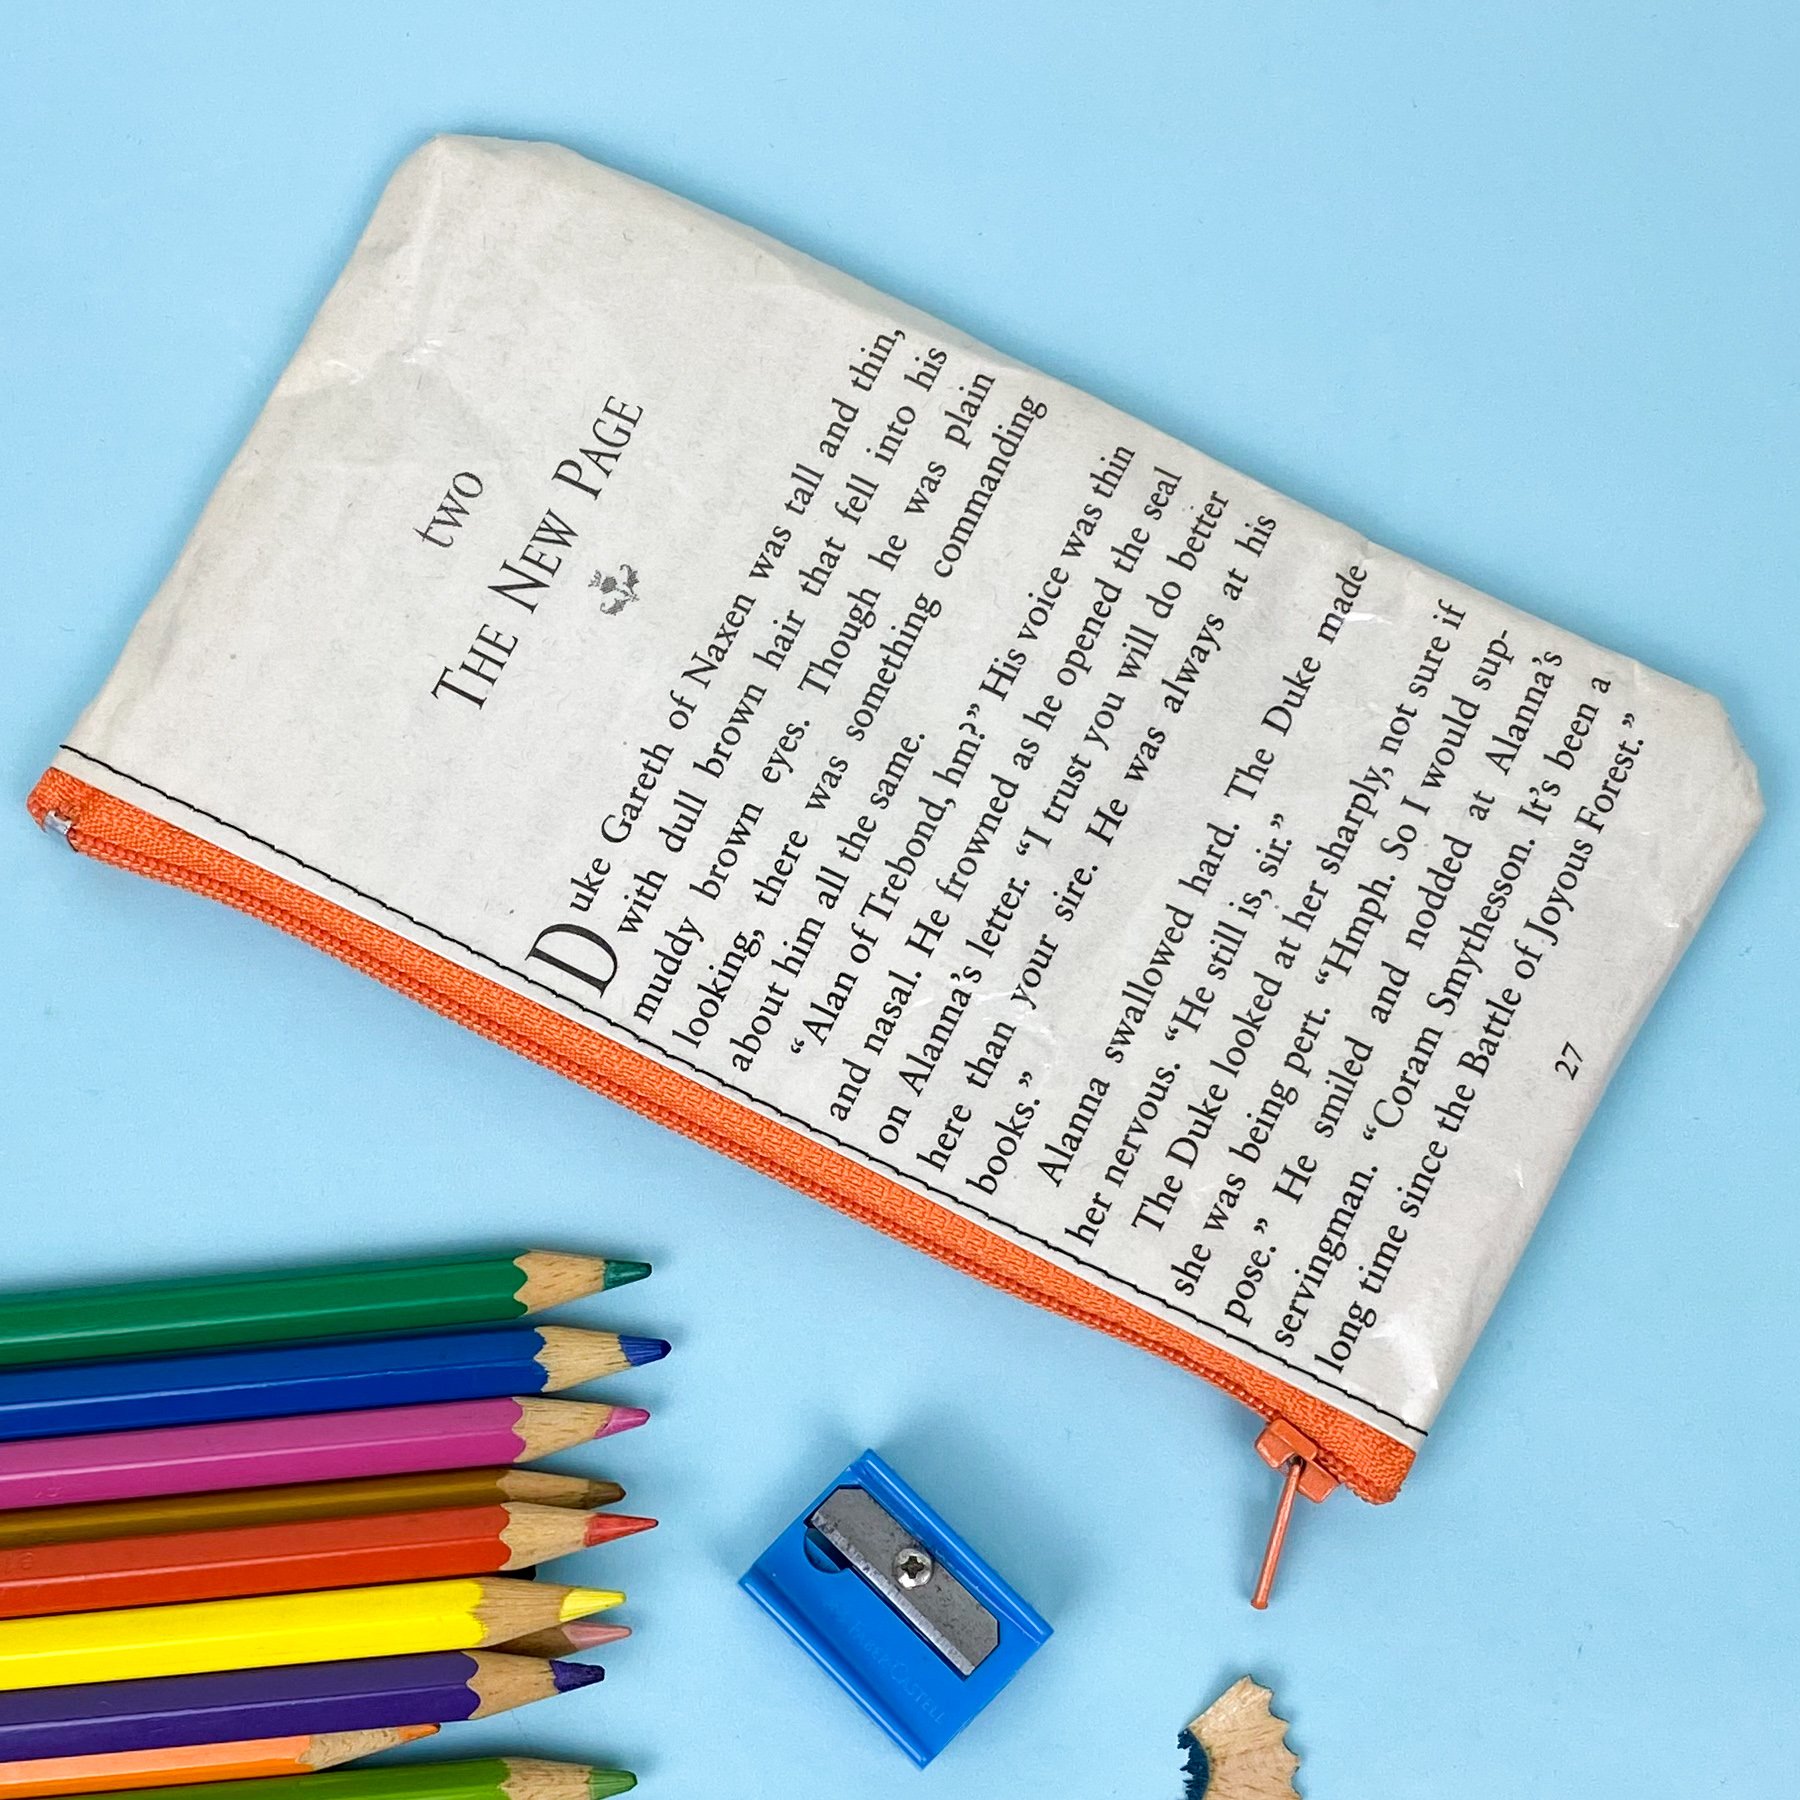 two
THE NEW PAGE
Duke Gareth of Naxen was tall and thin,
with dull brown hair that fell into his
muddy brown eyes. Though he was plain
looking, there was something commanding
about him all the same.
“Alan of Trebond, hm?” His voice was thin
and nasal. He frowned as he opened the seal
on Alanna’s letter. “I trust you will do better
here than your sire. He was always at his
books.”
Alanna swallowed hard. The Duke made
her nervous. “He still is, sir.”
The Duke looked at her sharply, not sure if
she was being pert. “Hmph. So I would sup-
pose.” He smiled and nodded at Alanna’s
servingman. “Coram Smythesson. It’s been a
long time since the Battle of Joyous Forest.”
27
FABER-CASTELL